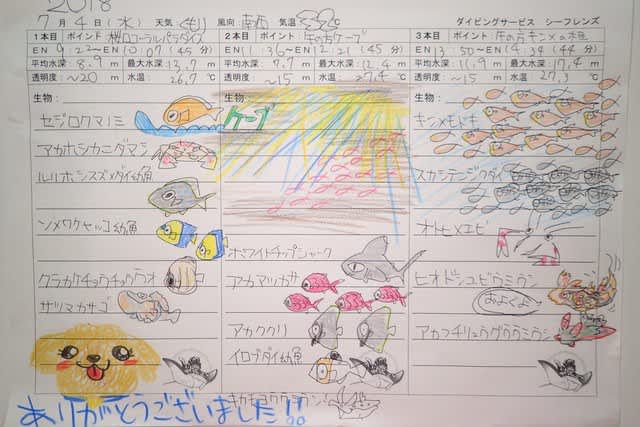 2018
7月4日(水) 天気 くもり 風向: 南西 気温 32℃ ダイビングサービス シーフレンズ
1本目 ポイント 桜口コーラルパラダイス
EN 9:22〜EN 10:07 (45分)
平均水深: 8.9m 最大水深 13.7m
透明度: 〜20m 水温: 26.7℃
生物:
セジロクマノミ
アカホシカニダマシ
ルリホシスズメダイ幼魚
ソメワケヤッコ幼魚
クラカケチョウチョウウオ
サツマカサゴ
2本目 ポイント 牛の方ケーブ
EN 11:36〜EN 12:21 (45分)
平均水深: 7.7m 最大水深 12.4m
透明度: 〜15m 水温: 27.4℃
生物:
ケーブ
ホワイトチップシャーク
アカマツカサ
アカククリ
イロブダイ幼魚
キカモヨウウミウシ
3本目 ポイント 牛の方キンメの根
EN 13:50〜EN 14:34 (44分)
平均水深: 11.9m 最大水深: 17.4m
透明度: 〜15m 水温: 27.3℃
生物:
キンメモドキ
スカシテンジクダイ
オトヒメエビ
ヒオドシユビウミウシ
およぐよ
アカフチリュウグウウミウシ
ありがとうございました!!